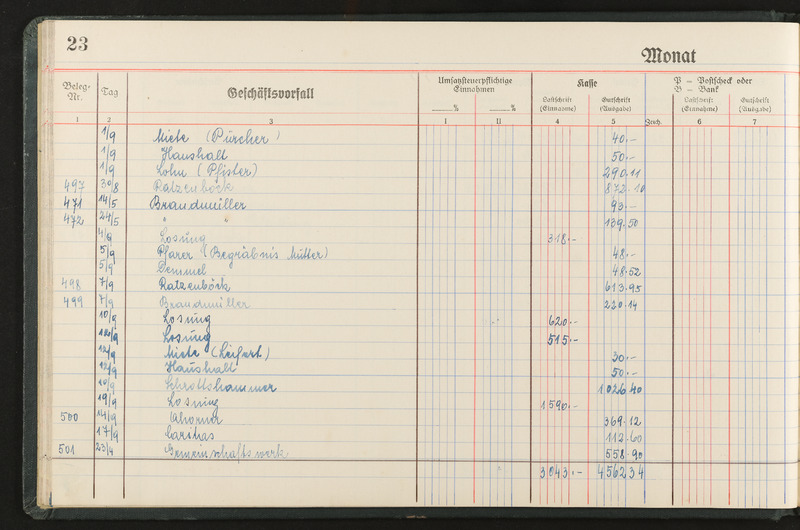 23
Monat
Beleg-Nr. Tag Geschäftsvorfall Umsatzsteuerpflichtige Einnahmen Kasse P = Postscheck oder B = Bank
% % Lastschrift (Einnahme) Gutschrift (Ausgabe) Zeich. Lastschrift (Einnahme) Gutschrift (Ausgabe)
1 2 3 I II 4 5 6 7
1/9 Miete (Pürcher) 40.-
1/9 Haushalt 50.-
1/9 Lohn (Pfister) 290.11
497 30/8 Ratzenböck 873.10
471 14/5 Brandmüller 93.-
472 24/5 " " 139.50
4/9 Losung 318.-
5/9 Pfarer (Begräbnis Mutter) 48.-
5/9 Gemmel 48.52
498 7/9 Ratzenböck 613.95
499 7/9 Brandmüller 220.14
10/9 Losung 620.-
12/9 Losung 515.-
12/9 Miete (Leifert) 30.-
12/9 Haushalt 50.-
10/9 Schrottshammer 1026.40
19/9 Losung 1590.-
500 14/9 369.12
17/9 Caritas 112.60
501 23/4 Gemeinschaftswerk 558.90
3043.- 456234